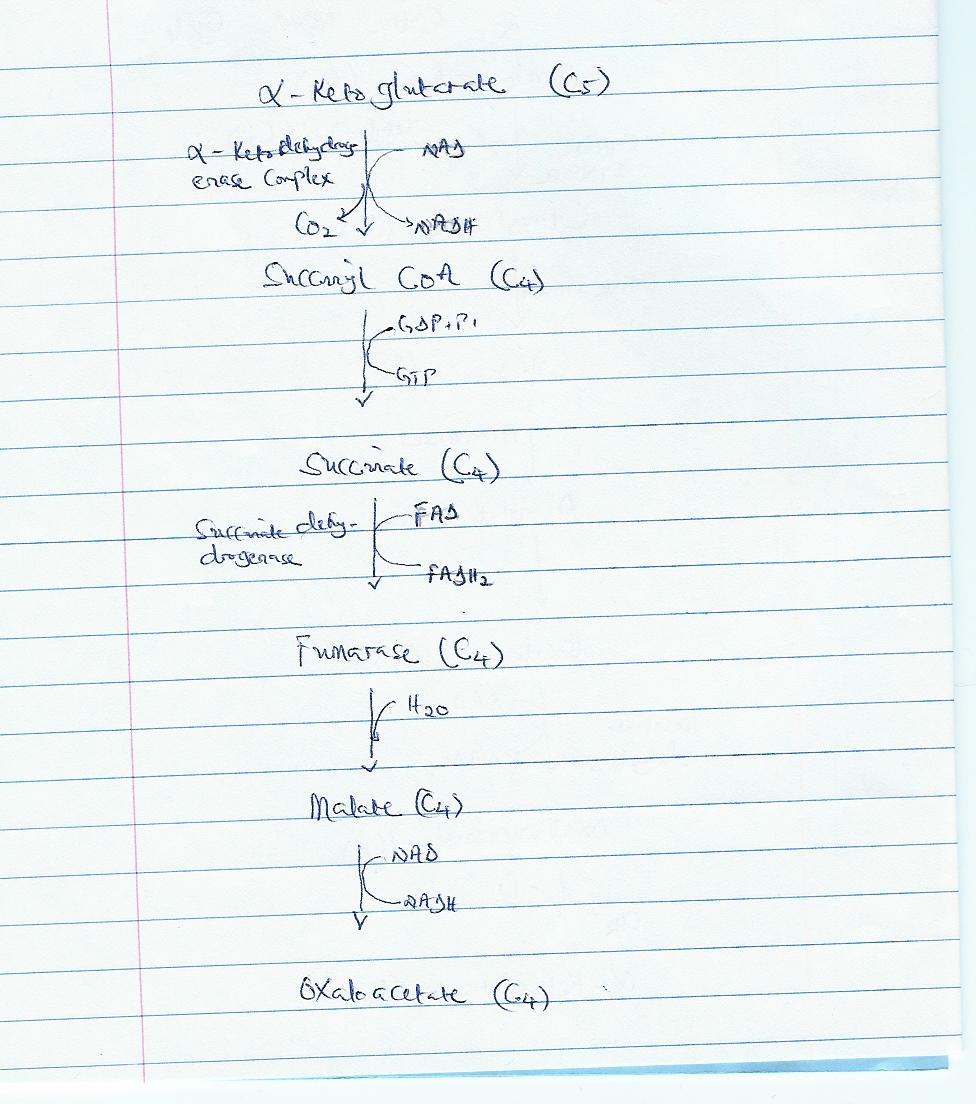 α-Ketoglutarate (C5)
α-Ketodehydrog-
enase Complex
NAD
CO2
NADH
Succinyl CoA (C4)
GDP+Pi
GTP
Succinate (C4)
Succinate dehy-
drogenase
FAD
FADH2
Fumarase (C4)
H2O
Malate (C4)
NAD
NADH
Oxaloacetate (C4)